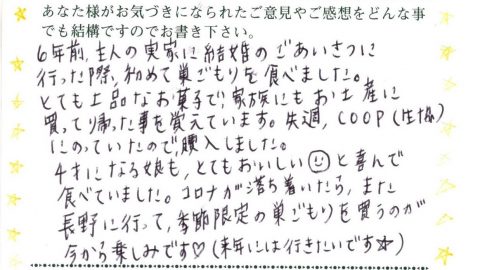 あなた様がお気づきになられたご意見やご感想をどんな事
でも結構ですのでお書き下さい。
6年前、主人の実家に結婚のごあいさつに
行った際、初めて巣ごもりを食べました。
とても上品なお菓子で、家族にもお土産に
買って帰った事を覚えています。先週、COOP(生協)
にのっていたので、購入しました。
4才になる娘も、とてもおいしい☺と喜んで
食べていました。コロナが落ち着いたら、また
長野に行って、季節限定の巣ごもりを買うのが
今から楽しみです♡(来年には行きたいです☆)